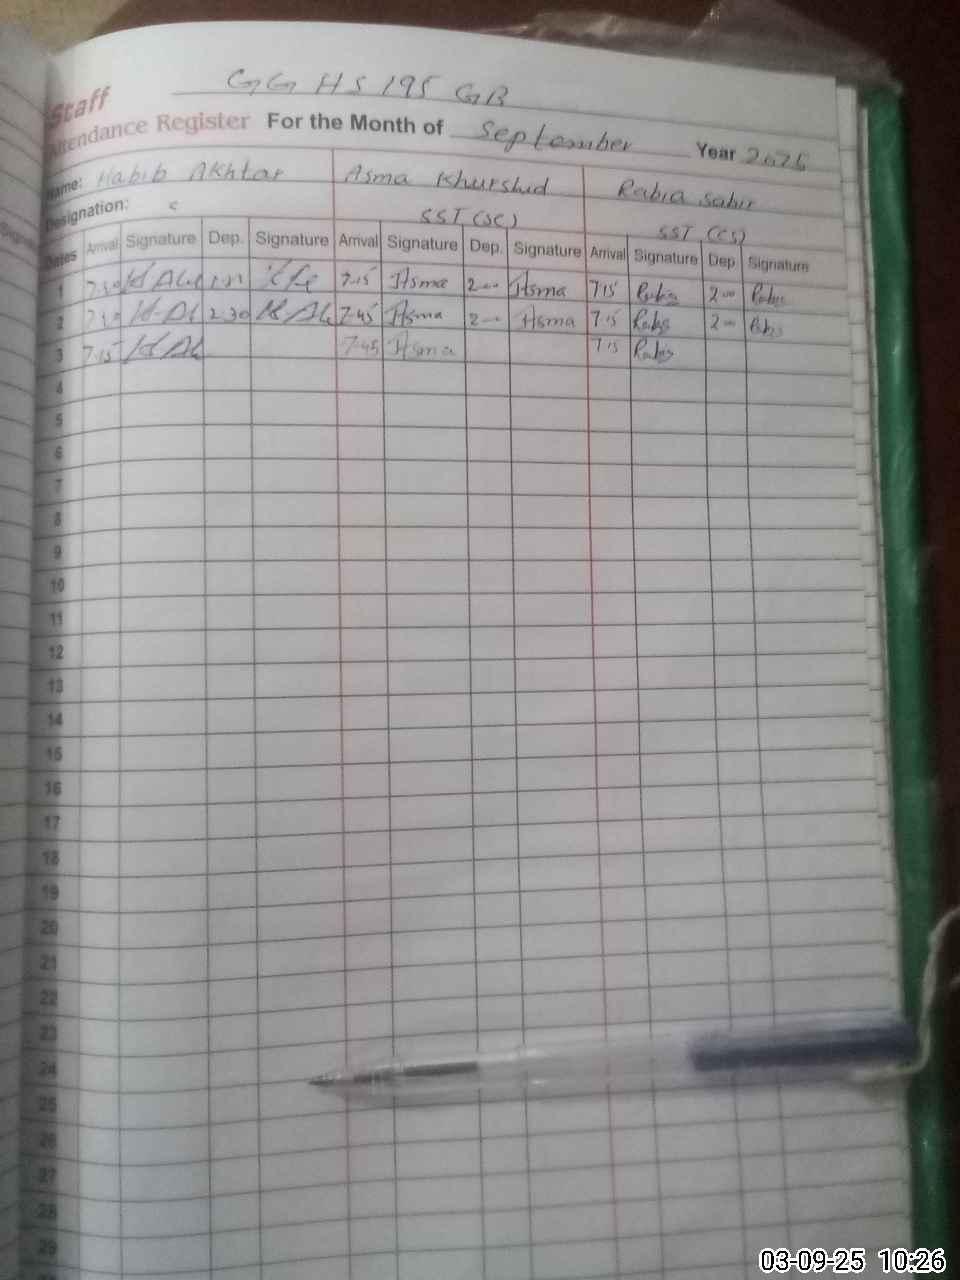 GGHS 195 GB
Staff
Attendance Register For the Month of September Year 2025
Name: Habib Akhtar Asma Khurshid Rabia Sabir
Designation: SST (SC) SST (CS)
Dates Arrival Signature Dep. Signature Arrival Signature Dep. Signature Arrival Signature Dep Signature
1 7:30 7:15 Asma 2:00 Asma 7:15 Rabia 2:00 Rabia
2 7:30 2:30 7:45 Asma 2:00 Asma 7:15 Rabia 2:00 Rabia
3 7:15 7:45 Asma 7:15 Rabia
4
5
6
7
8
9
10
11
12
13
14
15
16
17
18
19
20
21
22
23
24
25
26
27
28
29
03-09-25 10:26